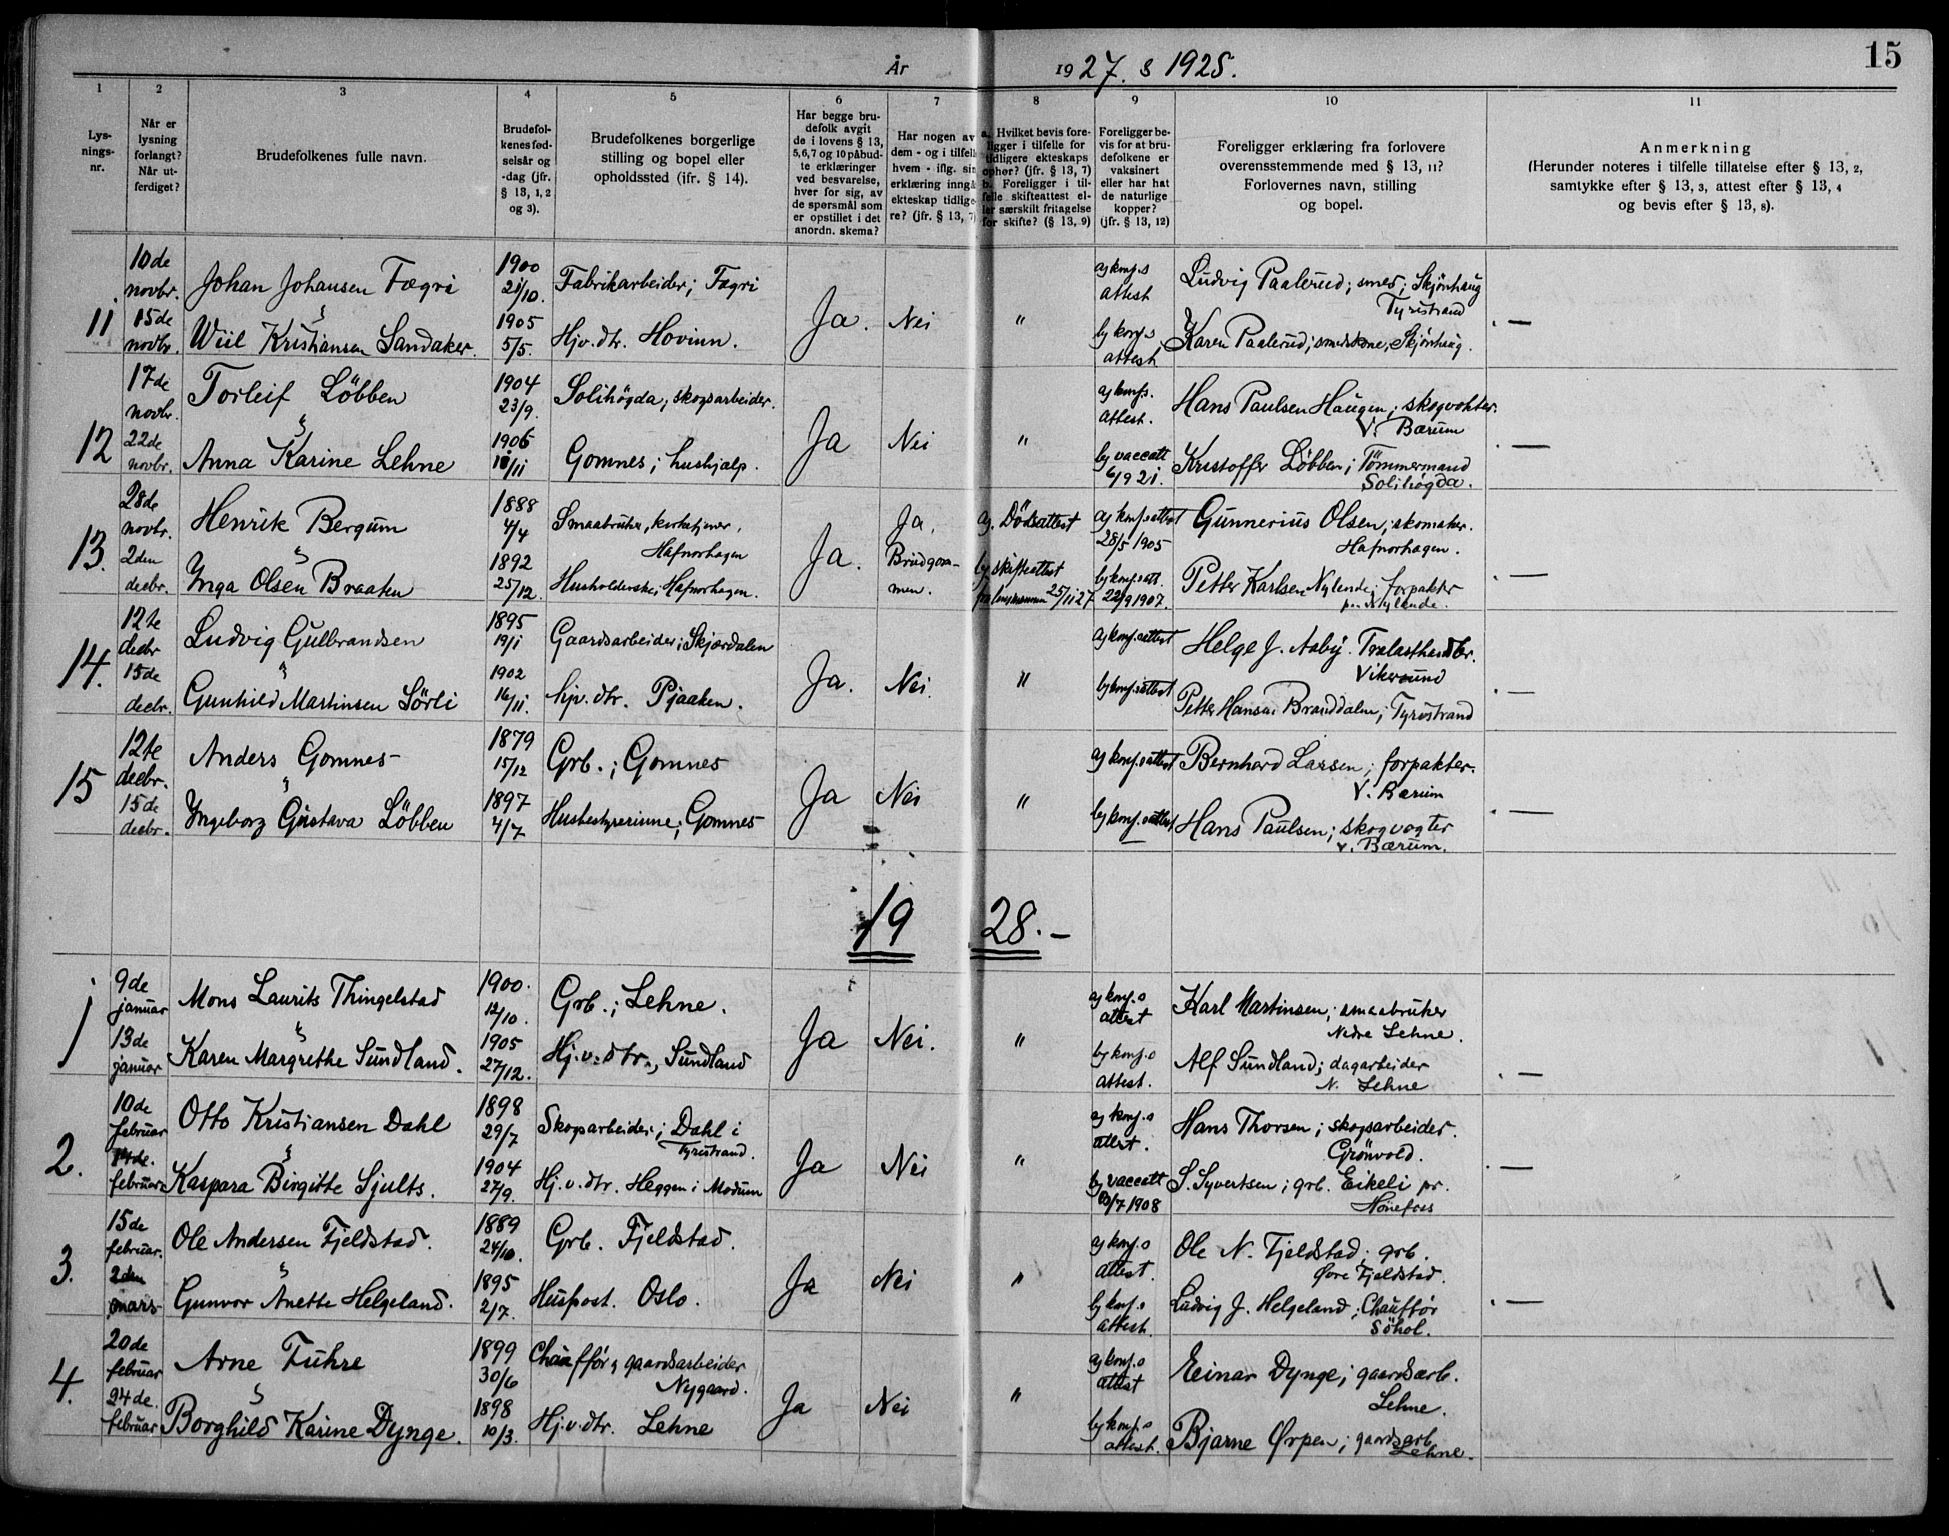 15
År 1927. & 1928.
1 2 3 4 5 6 7 8 9 10 11
Lys-
nings-
nr.
Når er
lysning
forlangt?
Når ut-
ferdiget?
Brudefolkenes fulle navn.
Brudefol-
kenes fød-
selsår og
-dag (jfr.
§ 13, 1, 2
og 3).
Brudefolkenes borgerlige
stilling og bopel eller
opholdssted (ifr. § 14).
Har begge bru-
defolk avgit
de i lovens § 13,
5, 6, 7 og 10 påbud-
te erklæringer
ved besvarelse,
hver for sig, av
de spørsmål som
er opstillet i det
anordn. skema?
Har nogen av
dem - og i tilfelle
hvem - iflg. sin
erklæring inngå
ekteskap tidlige-
re? (jfr. § 13, 7)
a. Hvilket bevis fore-
ligger i tilfelle for
tidligere ekteskaps
ophør? (jfr. § 13, 7)
b. Foreligger i til-
felle skifteattest el-
ler særskilt fritagelse
for skifte? (§ 13, 9)
Foreligger be-
vis for at bru-
defolkene er
vaksinert
eller har hat
de naturlige
kopper?
(jfr. § 13, 12)
Foreligger erklæring fra forlovere
overensstemmende med § 13, 11?
Forlovernes navn, stilling
og bopel.
Anmerkning
(Herunder noteres i tilfelle tillatelse efter § 13, 2,
samtykke efter § 13, 3, attest efter § 13, 4
og bevis efter § 13, 8).
11
10de
novbr.
15de
novbr.
Johan Johansen Fægri
&
Wiil Kristiansen Sandaker.
1900
21/10.
1905
5/5.
Fabrikarbeider; Fægri
Hjv. dtr. Hovinn.
Ja.
Nei
"
a) konf.s
attest
b) konf.s
attest
Ludvig Paalerud; smed; Skjønhaug
Tyristrand
Karen Paalerud; smedkone; Skjønhaug.
. —
12
17de
novbr.
22de
novbr.
Torleif Löbben
&
Anna Karine Lehne
1904
23/9.
1906
/11
Solihögda; skogsarbeider.
Gomnes; hushjælp.
Ja
Nei
"
a) konfs.
attest.
b) vaccatt
6/9 21.
Hans Paulsen Haugen; skogvokter.
V. Bærum
Kristoffer Löbben; Tömmermand
Solihögda.
. —
13.
28de
novbr.
2den
decbr.
Henrik Bergum
&
Ynga Olsen Braaten
1888
4/4
1892
25/12.
Smaabruker, kirketjener,
Hafnorhagen
Husholderske; Hafnorhagen.
Ja.
Ja.
Brudgom-
men.
a). Dødsattest
b) skifteattest
fra lensmannen 25/11 27
a) konf.sattest
28/5 1905
b) konf.satt.
22/9 1907.
Gunnerius Olsen; skomaker.
Hafnorhagen.
Petter Karlsen Nylende; forpakter
pr. Nylende.
. —
14.
12te
decbr
15de
decbr.
Ludvig Gulbrandsen
&
Gunhild Martinsen Sörli
1895
19/1
1902
16/11.
Gaardsarbeider; Skjærdalen
hjv. dtr. Pjaaken.
Ja.
Nei.
"
a) konf.sattest
b) konf.sattest
Helge J. Aaby. Trælasthandler.
Vikersund
Petter Hansen Branddalen; Tyristrand
. —
15
12te
decbr.
15de
decbr.
Anders Gomnes
&
Yngeborg Gustava Löbben
1879
15/12
1897
4/7
Grb.; Gomnes
Husbestyrerinne; Gomnes
Ja
Nei
"
a) konf.sattest
b) konf.sattest
Bernhard Larsen; forpakter.
V. Bærum
Hans Paulsen; skogvogter
v. Bærum.
. —
1928. —
1
9de
januar
13de
januar
Mons Laurits Thingelstad
&
Karen Margrethe Sundland.
1900.
12/10.
1905
27/12.
Grb.; Lehne.
Hj. v. dtr., Sundland
Ja
Nei.
"
a) konf.s
attest
b) konf.s
attest.
Karl Martinsen; smaabruker
Nedre Lehne.
Alf Sundland; dagarbeider
N. Lehne
. —
2.
10de
februar
14de.
februar
Otto Kristiansen Dahl
&
Kaspara Birgitte Sjults.
1898
29/7
1904
27/9.
Skogsarbeider; Dahl i
Tyristrand.
Hj. v. dtr. Heggen i Modum
Ja
Nei
"
a) konf.s
attest.
b) vaccatt
/7 1908
Hans Thorsen; skogsarbeider.
Grönvold.
S. Syvertsen; grb. Eikeli pr.
Hönefoss
. —
3.
15de
februar.
2den
mars
Ole Andersen Fjeldstad.
&
Gunvor Anette Helgeland.
1889
24/10.
1895
2/7.
Grb. Fjeldstad.
Huspost. Oslo.
Ja
Nei
"
a) konf.s
attest.
b) konf.s
attest.
Ole N. Fjeldstad; grb.
Øvre Fjeldstad.
Ludvig J. Helgeland; Chauffør
Söhol.
. —
4.
20de
februar
24de.
februar
Arne Fuhre
&
Borghild Karine Dynge.
1899
30/6
1898
10/3.
Chauffør & gaardsarbeider
Nygaard.
Hj. v. dtr. Lehne
Ja
Nei
"
a) konf.s
attest
b) konf.s
attest.
Einar Dynge; gaardsarb.
Lehne.
Bjarne Ørpen; gaardsarb.
Lehne.